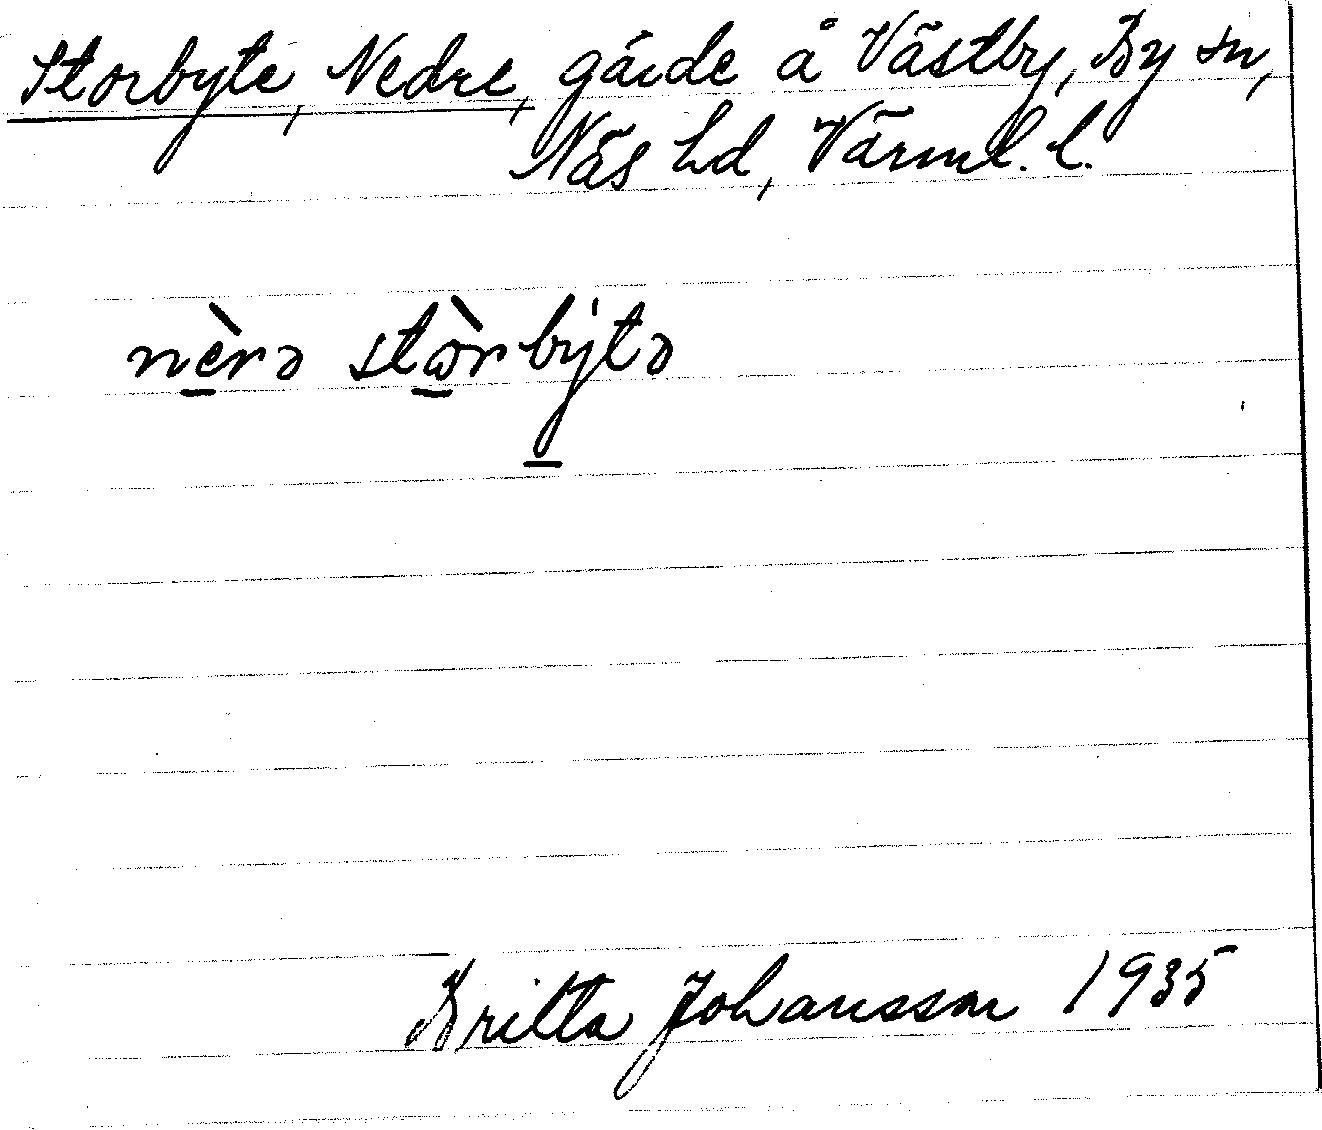 Storbyte, Nedre, gärde å Västby, By sn,
Näs hd, Värml. l.
nèrə stòrbýtə
Britta Johansson 1935